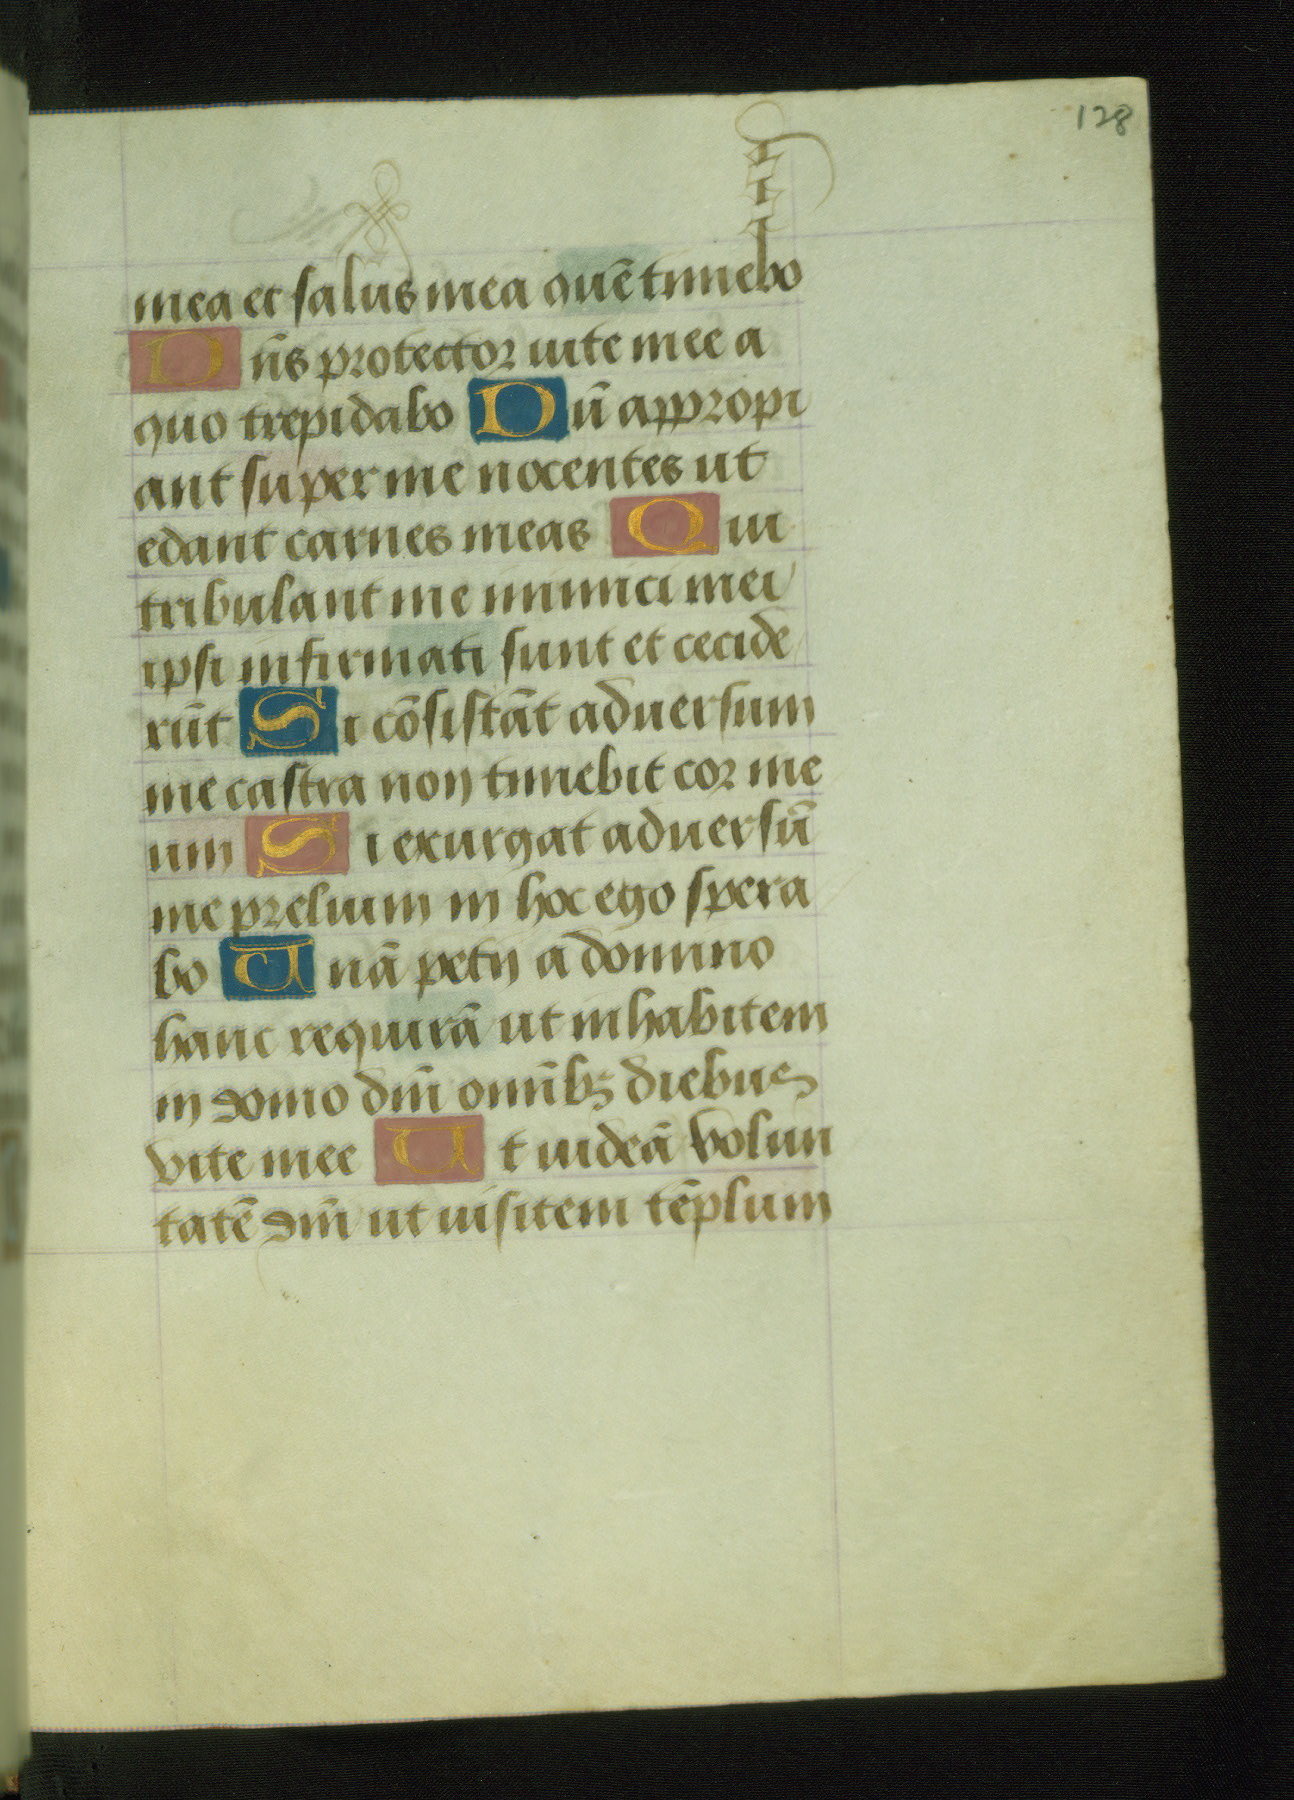 128
mea et salus mea quē timebo
Dn̄s protector uite mee a
quo trepidabo Dū appropi
ant super me nocentes ut
edant carnes meas Qui
tribulant me inimici mei
ipsi infirmati sunt et cecide
rūt Si cōsistāt aduersum
me castra non timebit cor me
um Si exurgat aduersū
me prelium in hoc ego spera
bo Unā petii a domino
hanc requirā ut inhabitem
in domo dn̄i omībꝫ diebus
vite mee Ut uideā volun
tatē dn̄i ut uisitem tēplum